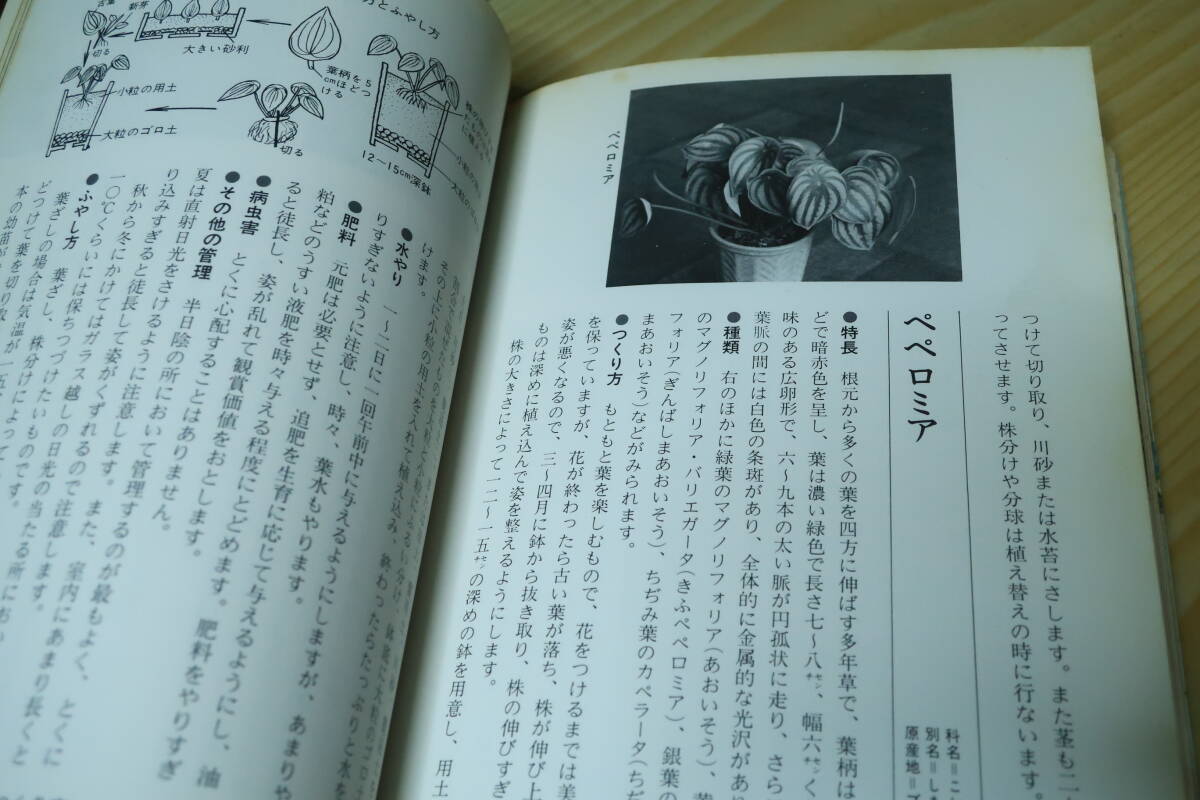 つけて切り取り、川砂または水苔にさします。また茎も二
ってさせます。株分けや分球は植え替えの時に行ないます。
ペペロミア
科名＝こ
別名＝しま
原産地＝ブ
ペペロミア
●特長　根元から多くの葉を四方に伸ばす多年草で、葉柄は
どで暗赤色を呈し、葉は濃い緑色で長さ七〜八㌢、幅六㌢く
味のある広卵形で、六〜九本の太い脈が円弧状に走り、さら
葉脈の間には白色の条斑があり、全体的に金属的な光沢があり
●種類　右のほかに緑葉のマグノリフォリア（あおいそう）、黄
のマグノリフォリア・バリエガータ（きふペペロミア）、銀葉の
フォリア（ぎんばしまあおいそう）、ちぢみ葉のカペラータ（ちぢ
まあおいそう）などがみられます。
●つくり方　もともと葉を楽しむもので、花をつけるまでは美
を保っていますが、花が終わったら古い葉が落ち、株が伸び上
姿が悪くなるので、三〜四月に鉢から抜き取り、株の伸びすぎ
ものは深めに植え込んで姿を整えるようにします。
株の大きさによって一二〜一五㌢の深めの鉢を用意し、用土
とふやし方
古葉
新芽
切る
大きい砂利
葉柄を5
cmほどつ
ける
小粒の用土
大粒のゴロ土
切る
12〜15cm深鉢
その上に小粒の用土を入れて植え込み、終わったらたっぷりと水を
けます。
●水やり　一〜二日に一回午前中に与えるようにしますが、あまりや
りすぎないように注意し、時々、葉水もやります。
●肥料　元肥は必要とせず、追肥を生育に応じて与えるようにし、油
粕などのうすい液肥を時々与える程度にとどめます。肥料をやりすぎ
ると徒長し、姿が乱れて観賞価値をおとします。
●病虫害　とくに心配することはありません。
●その他の管理　半日陰の所において管理するのが最もよく、とくに
夏は直射日光をさけるように注意します。また、室内にあまり長くと
り込みすぎると徒長して姿がくずれるので注意します。
秋から冬にかけてはガラス越しの日光の当たる所におい
一〇℃くらいには保ちつづけたいものです。
●ふやし方　葉ざし、株分けによって
葉ざしの場合は気温が一五
どつけて葉を切り取
本の幼苗が